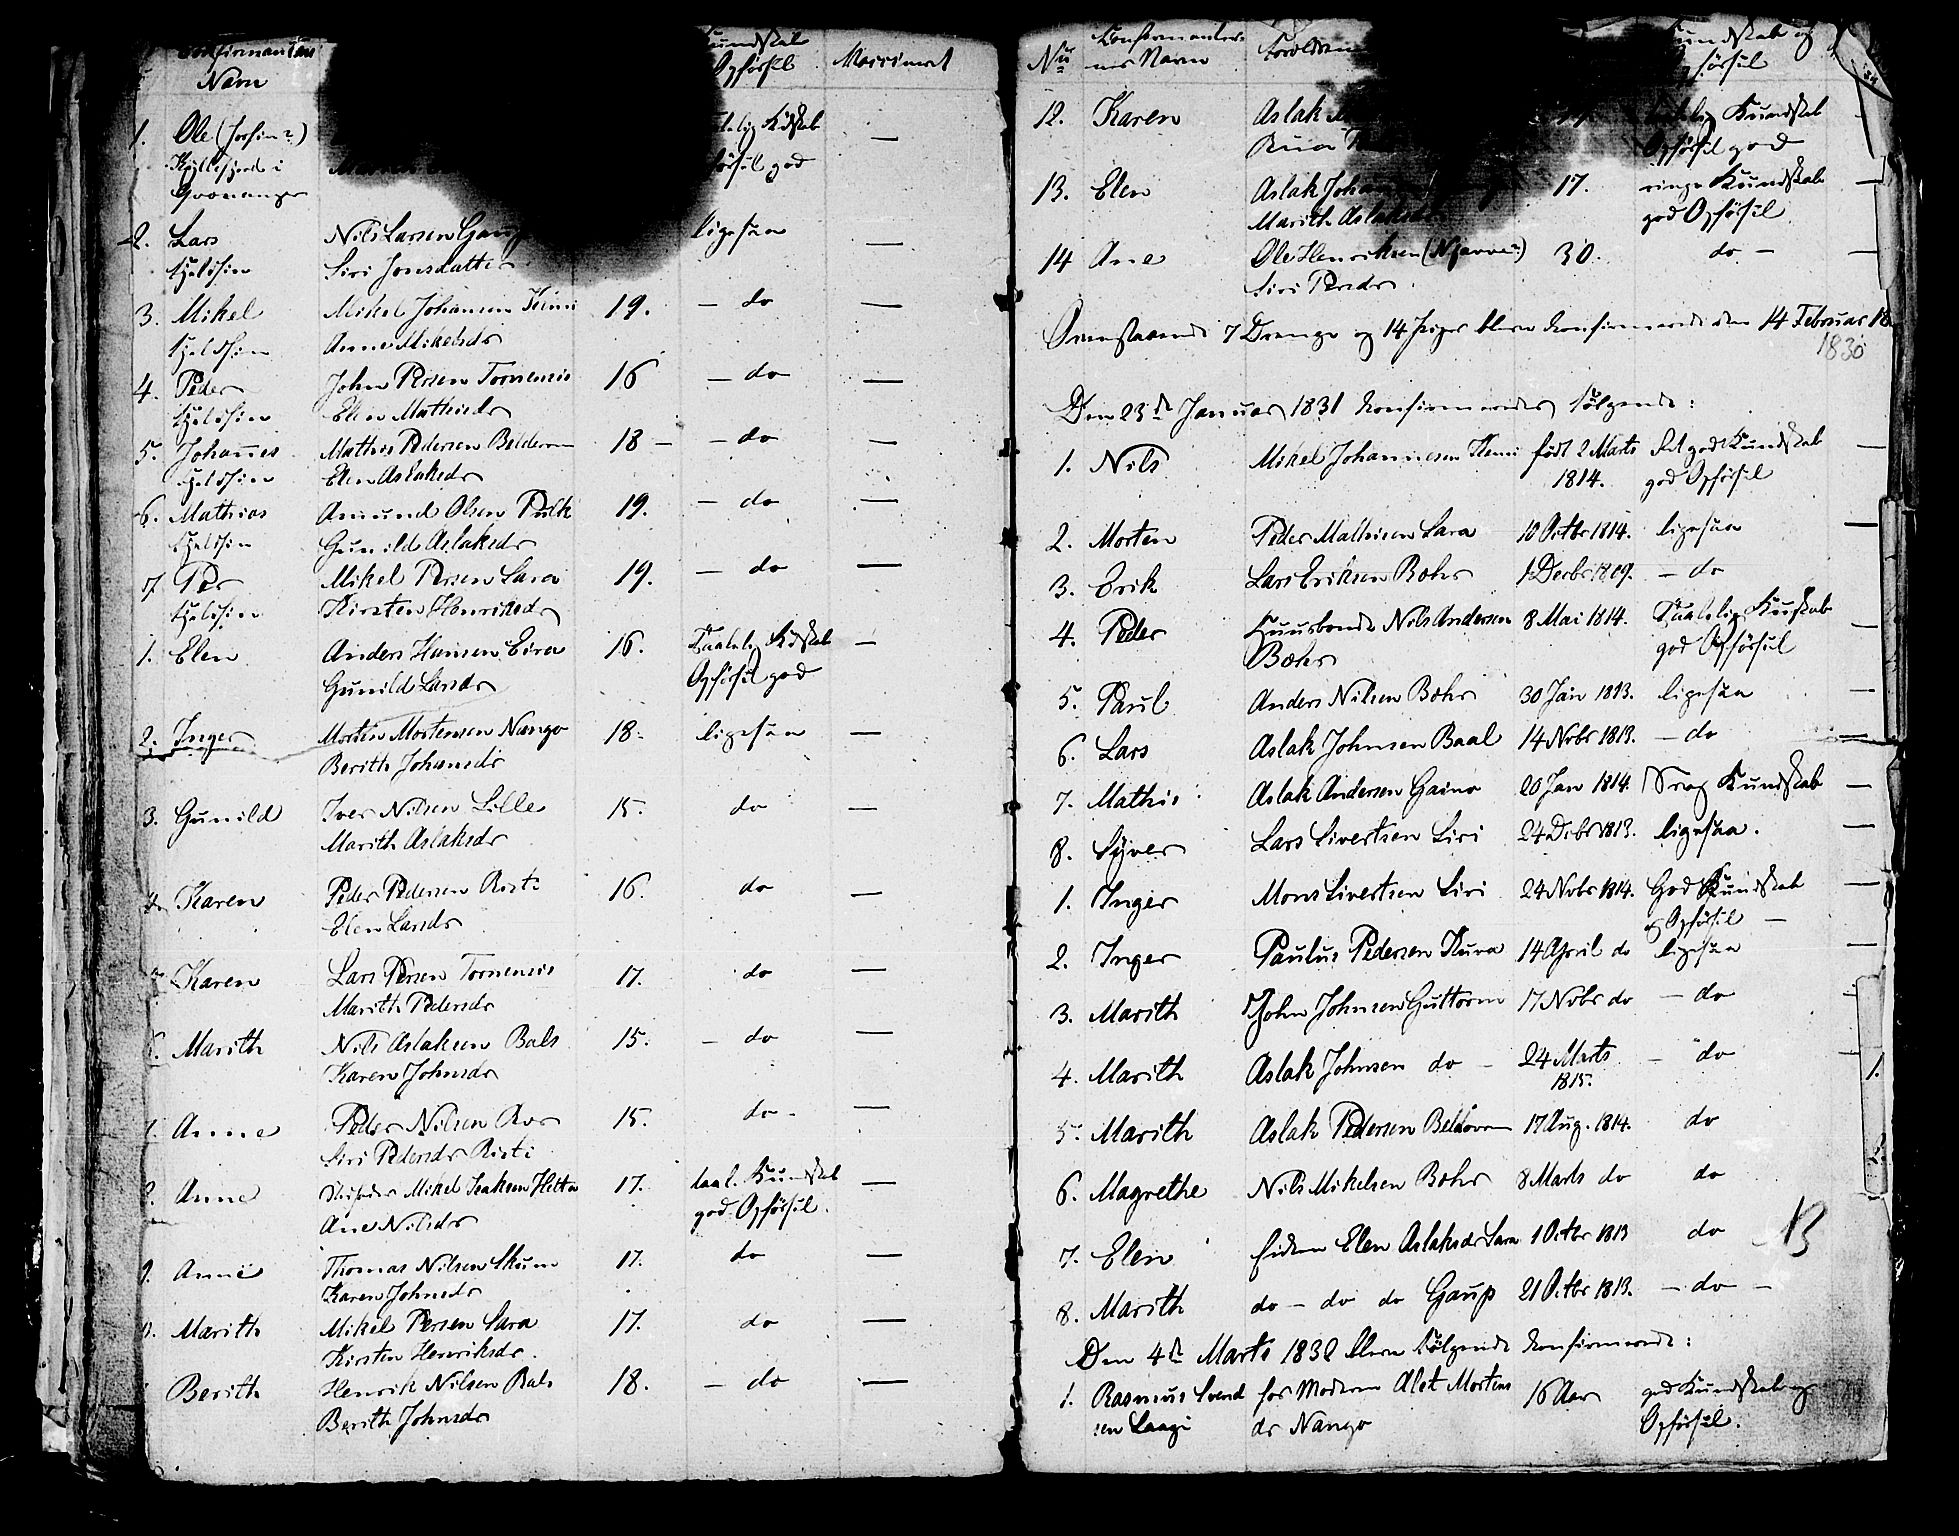 Confirmanters
Navn
Kundskab
Opførsel
Vaccineret
1. Ole
i
Kundskab
Opførsel god
2. Lars
Nils Larsen Gaup
ligesaa
Siri Jonsdatter
3. Mikel
Mikel Johansen Kemi
19.
do
Anne Mikelsdr
4. Peder
John Persen Tornensis
16
do
Elen Mathisdr
5. Johannes
Mathis Pedersen Beldovin
18
do
Elen Aslaksdr
6. Mathias
Amund Olsen Pulk
19.
do
Gunild Aslaksdr
7 Per
Mikel Persen Sara
19.
do
Kirsten Henriksdr
1. Elen
Anders Hansen Eira
16.
Taalelig Kdskab
Gunild Larsdr
Opførsel god
2. Inger
Morten Mortensen Nango
18.
ligesaa
Berith Johansdr
3. Gunild
Iver Nilsen Lille
15.
do
Marith Aslaksdr
4. Karen
Peder Pedersen Risti
16.
do
Elen Larsdr
5. Karen
Lars Persen Tornensis
17.
do
Marith Pedersdr
6. Marith
Nils Aslaksen Bals
15.
do
Karen Johnsdr
Anne
Peder Nilsen
15.
do
Siri Pedersdr Risti
8. Anne
Mikel Isaksen Hetta
17.
taal. Kundskab
Ane Nilsdr
god Opførsel.
9. Anne
Thomas Nilsen Skum
17.
do
Karen Johnsdr
Marith
Mikel Persen Sara
17.
do
Kirsten Henriksdr.
Berith
Henrik Nilsen Bals
18.
do
Berith Johnsdr
No
Confirmanter-
nes Navn
Forældrene
Kundskab og
Opførsel
12. Karen
Aslak
Kundskab
Opførsel god
13. Elen
Aslak Johan
17.
ringe Kundskab
Marith Aslaksdr
god Opførsel
14 Ane
Ole Henriksen
30.
do
Siri Persdr
Ovenstaaende 7 Drenge og 14 Piger bleve konfirmerede den 14 Februar 18
1830
Den 23de Januar 1831 konfirmeredes følgende:
1. Nils
Mikel Johannesen Kemi
født 2 Marts
god Kundskab
1814.
god Opførsel
2. Morten
Peder Mathisen Sara
10 Octbr 1814.
ligesaa
3. Erik
Lars Eriksen Bæhr
1 Decbr 1809.
do
4. Peder
Huusbonde Nils Andersen
8 Mai 1814.
Taalelig Kuskab
Bæhr
god Opførsel
5. Paul
Anders Nilsen Bæhr
30 Jan 1813.
ligesaa
6. Lars
Aslak Johnsen Baal
14 Novbr 1813.
do
7. Mathis
Aslak Andersen Gaino
20 Jan 1814.
Svag Kundskab
8. Syver
Lars Sivertsen Siri
24 Decbr 1813.
ligesaa.
1. Inger
Mons Sivertsen Siri
24 Novbr 1814.
God Kundskab
og Opførsel
2. Inger
Paulus Pedersen Kuva
14 April do
ligesaa
3. Marith
John Johnsen Guttorm
17 Novbr do
do
4. Marith
Aslak Johnsen do
24 Marts
do
1815.
5. Marith
Aslak Pedersen Beldovin
17 Aug. 1814.
do
6. Magrethe
Nils Mikelsen Bæhr
8 Marts do
do
7. Elen
Enken Elen Aslaksdr Sara
1 Octbr 1813
do
8. Marith
do do do Gaup
21 Octbr 1813.
do
Den 4de Marts 1832 bleve følgende konfirmerede:
1. Rasmus Svend
for Moderen Alet Mortens
16 Aar
god Kundskab og
sen Laagi
dr Nango
Opførsel.
13